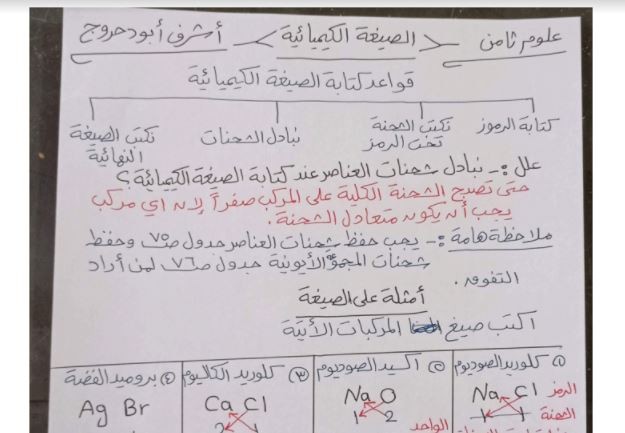 علوم ثامن > الصيغة الكيميائية < أشرف أبو دحروج
قواعد كتابة الصيغة الكيميائية
كتابة الرموز
نكتب الشحنة تحت الرمز
نبادل الشحنات
نكتب الصيغة النهائية
علل :- نبادل شحنات العناصر عند كتابة الصيغة الكيميائية ؟
حتى تصبح الشحنة الكلية على المركب صفراً لإنه اي مركب
يجب أن يكون متعادل الشحنة .
ملاحظة هامة :- يجب حفظ شحنات العناصر جدول ص٧٥ وحفظ
شحنات الأيونية جدول ص٧٦ لمن أراد
التفوق .
أمثلة على الصيغة
اكتب صيغ المركبات الأتية
① كلوريد الصوديوم
② أكسيد الصوديوم
③ كلوريد الكالسيوم
④ بروميد الفضة
Na Cl الرمز
1 1 الشحنة
Na O
1 2
الواحد
Ca Cl
2 1
Ag Br